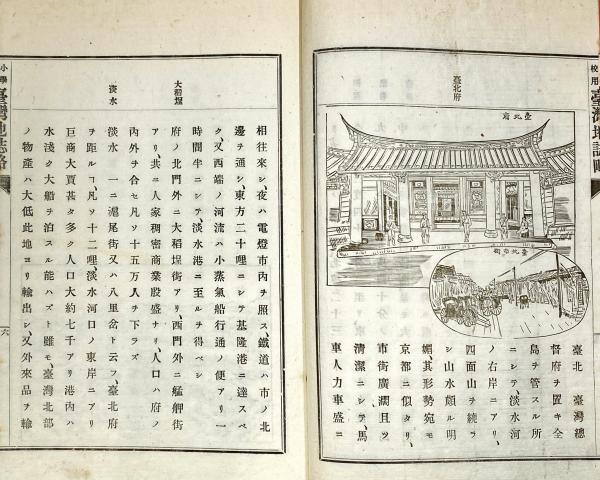 校用
臺灣地誌略
臺北府
臺北府
臺北府街
臺北 臺灣總
督府ヲ置キ全
島ヲ管スル所
ニシテ淡水河
ノ右岸ニアリ、
四面山ヲ繞ラ
シ山水頗ル明
媚、其形勢宛モ
京都ニ似タリ、
市街廣濶且ツ
清潔ニシテ、馬
車人力車盛ニ
相往來シ、夜ハ電燈市內ヲ照ス、鐵道ハ市ノ北
邊ヲ通シ、東方二十哩ニシテ基隆港ニ達スベ
ク、又西端ノ河流ハ小蒸氣船行通ノ便アリ一
時間半ニシテ、淡水港ニ至ルヲ得ベシ
大稻埕
府ノ北門外ニ大稻埕街アリ、西門外ニ艋舺街
アリ、共ニ人家稠密商業殷盛ナリ、人口ハ府ノ
內外ヲ合セ凡ソ十五万人ヲ下ラズ
淡水
淡水 一ニ滬尾街又ハ八里岔ト云フ、臺北府
ヲ距ルコ、凡ソ十二哩、淡水河口ノ東岸ニアリ
巨商大賈甚タ多ク人口大約七千アリ港內ハ
水淺ク大船ヲ泊スル能ハズト雖モ、臺灣北部
ノ物產ハ大低此地ヨリ輸出シ、又外來品ヲ輸
小學
臺灣地誌略
六